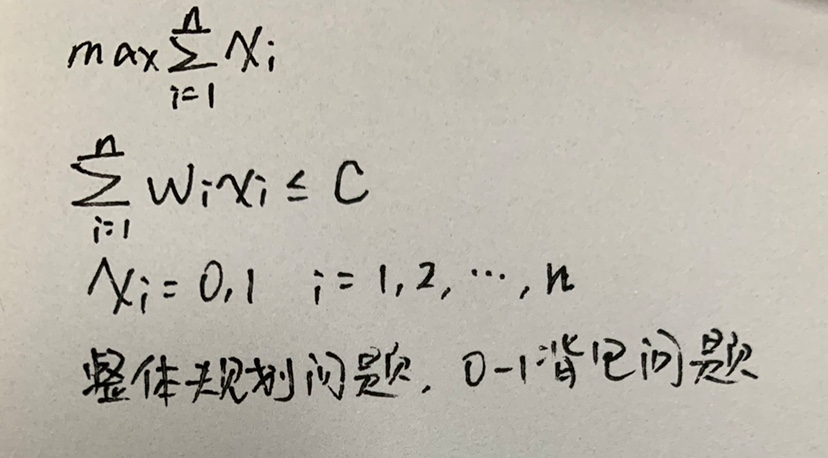 max∑_{i=1}^{n} x_i
∑_{i=1}^{n} w_i x_i ≤ C
x_i = 0,1 i = 1,2,⋯,n
整体规划问题. 0-1背包问题